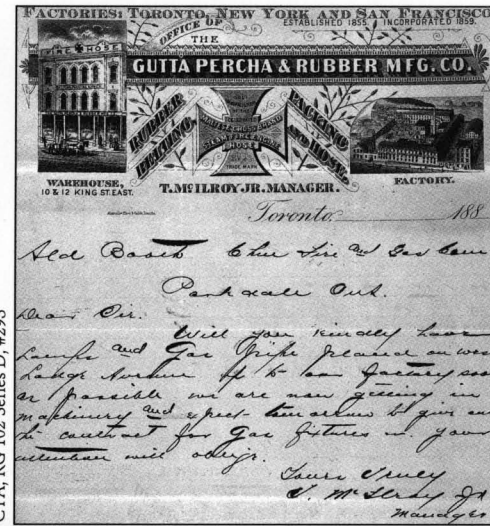 FACTORIES: TORONTO, NEW YORK AND SAN FRANCISCO
OFFICE OF
ESTABLISHED 1855 INCORPORATED 1859.
THE
FIRE HOSE
GUTTA PERCHA & RUBBER MFG. CO.
RUBBER BELTING,
MALTESE CROSS BRAND
HOSE
TRADE MARK
PACKING AND HOSE.
WAREHOUSE,
10 & 12 KING ST. EAST.
T. McILROY JR. MANAGER.
FACTORY.
Toronto 188
Ald Booth Chm Fire and Gas Com
Parkdale Ont.
Dear Sir.
Will you kindly have
Lamps and Gas Pipe placed on West
Lodge Avenue up to our factory soon
as possible we are now getting in
machinery and expect tomorrow to give out
the contract for Gas fixtures. your
attention will oblige.
Yours Truly
T. McIlroy Jr
Manager
CTA, RG 102 Series D, #295